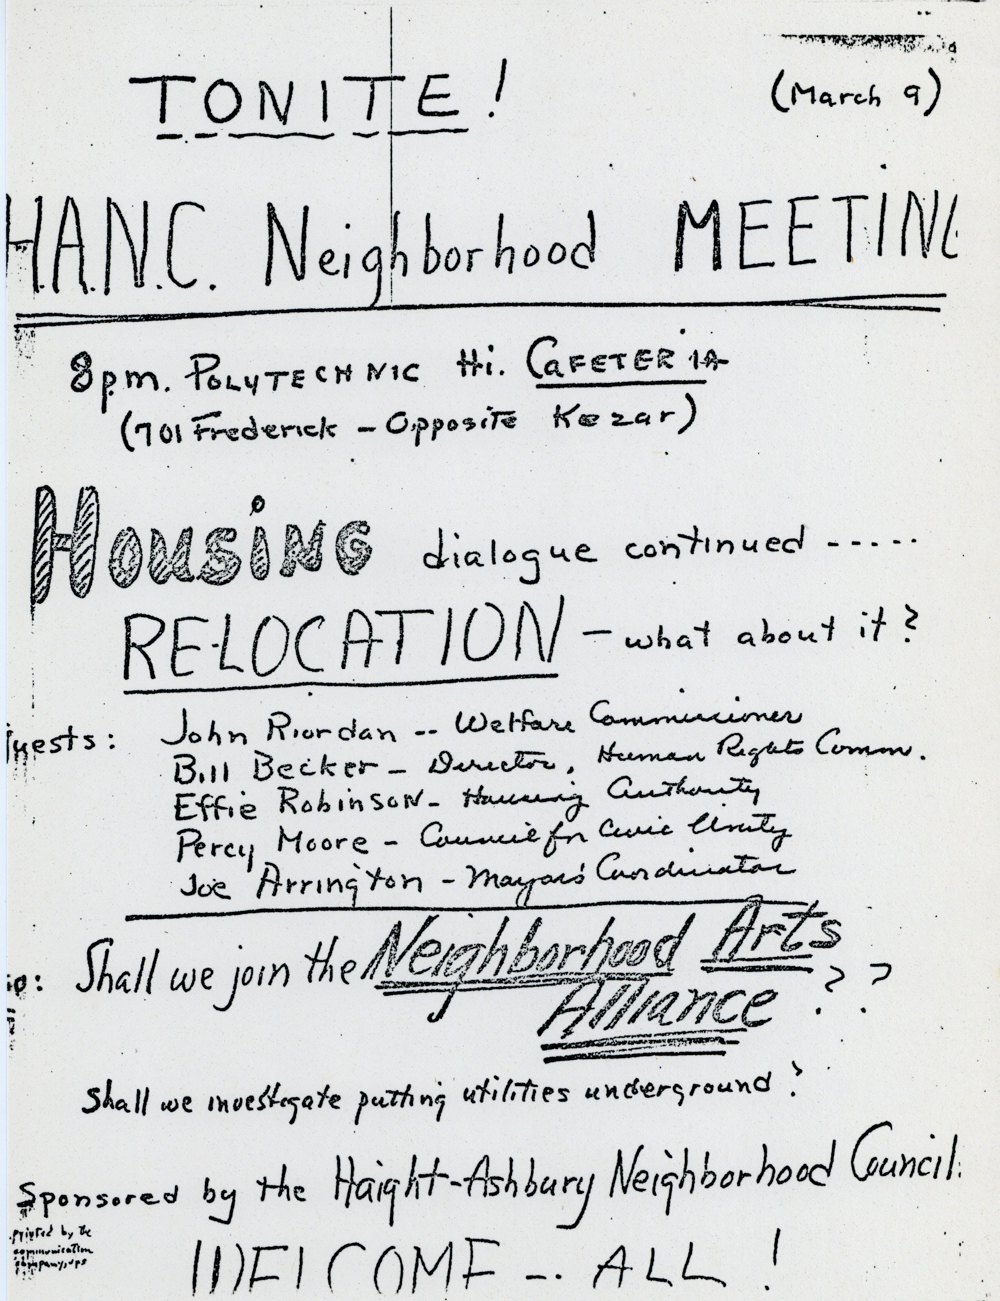 TONITE!
(March 9)
H.A.N.C. Neighborhood MEETING
8pm. POLYTECHNIC Hi. CAFETERIA
(701 Frederick - Opposite Kezar)
HOUSING dialogue continued -----
RE-LOCATION - what about it?
Guests: John Riordan -- Welfare Commissioner
Bill Becker - Director, Human Rights Comm.
Effie Robinson - Housing Authority
Percy Moore - Council for Civic Unity
Joe Arrington - Mayors' Coordinator
Shall we join the Neighborhood Arts
Alliance ??
Shall we investigate putting utilities underground?
Sponsored by the Haight-Ashbury Neighborhood Council.
printed by the
communication
company, ups
WELCOME -- ALL!